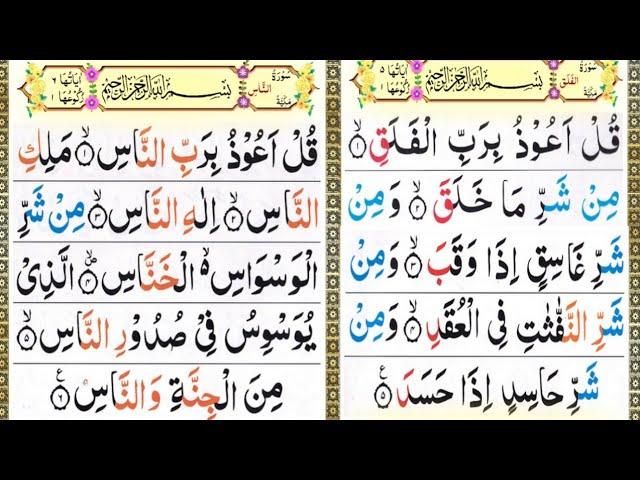 سُوْرَةُ الْفَلَقِ مَكِّيَّةٌ بِسْمِ اللّٰهِ الرَّحْمٰنِ الرَّحِيْمِ اٰيَاتُهَا ٥ رُكُوْعُهَا ١
قُلْ اَعُوْذُ بِرَبِّ الْفَلَقِ ۙ﴿١﴾
مِنْ شَرِّ مَا خَلَقَ ۙ﴿٢﴾ وَمِنْ
شَرِّ غَاسِقٍ اِذَا وَقَبَ ۙ﴿٣﴾ وَمِنْ
شَرِّ النَّفّٰثٰتِ فِى الْعُقَدِ ۙ﴿٤﴾ وَمِنْ
شَرِّ حَاسِدٍ اِذَا حَسَدَ ﴿٥﴾ع
سُوْرَةُ النَّاسِ مَكِّيَّةٌ بِسْمِ اللّٰهِ الرَّحْمٰنِ الرَّحِيْمِ اٰيَاتُهَا ٦ رُكُوْعُهَا ١
قُلْ اَعُوْذُ بِرَبِّ النَّاسِ ۙ﴿١﴾ مَلِكِ
النَّاسِ ۙ﴿٢﴾ اِلٰهِ النَّاسِ ۙ﴿٣﴾ مِنْ شَرِّ
الْوَسْوَاسِ ۙ الْخَنَّاسِ ۖ﴿٤﴾ الَّذِىْ
يُوَسْوِسُ فِىْ صُدُوْرِ النَّاسِ ۙ﴿٥﴾
مِنَ الْجِنَّةِ وَالنَّاسِ ﴿٦﴾ع